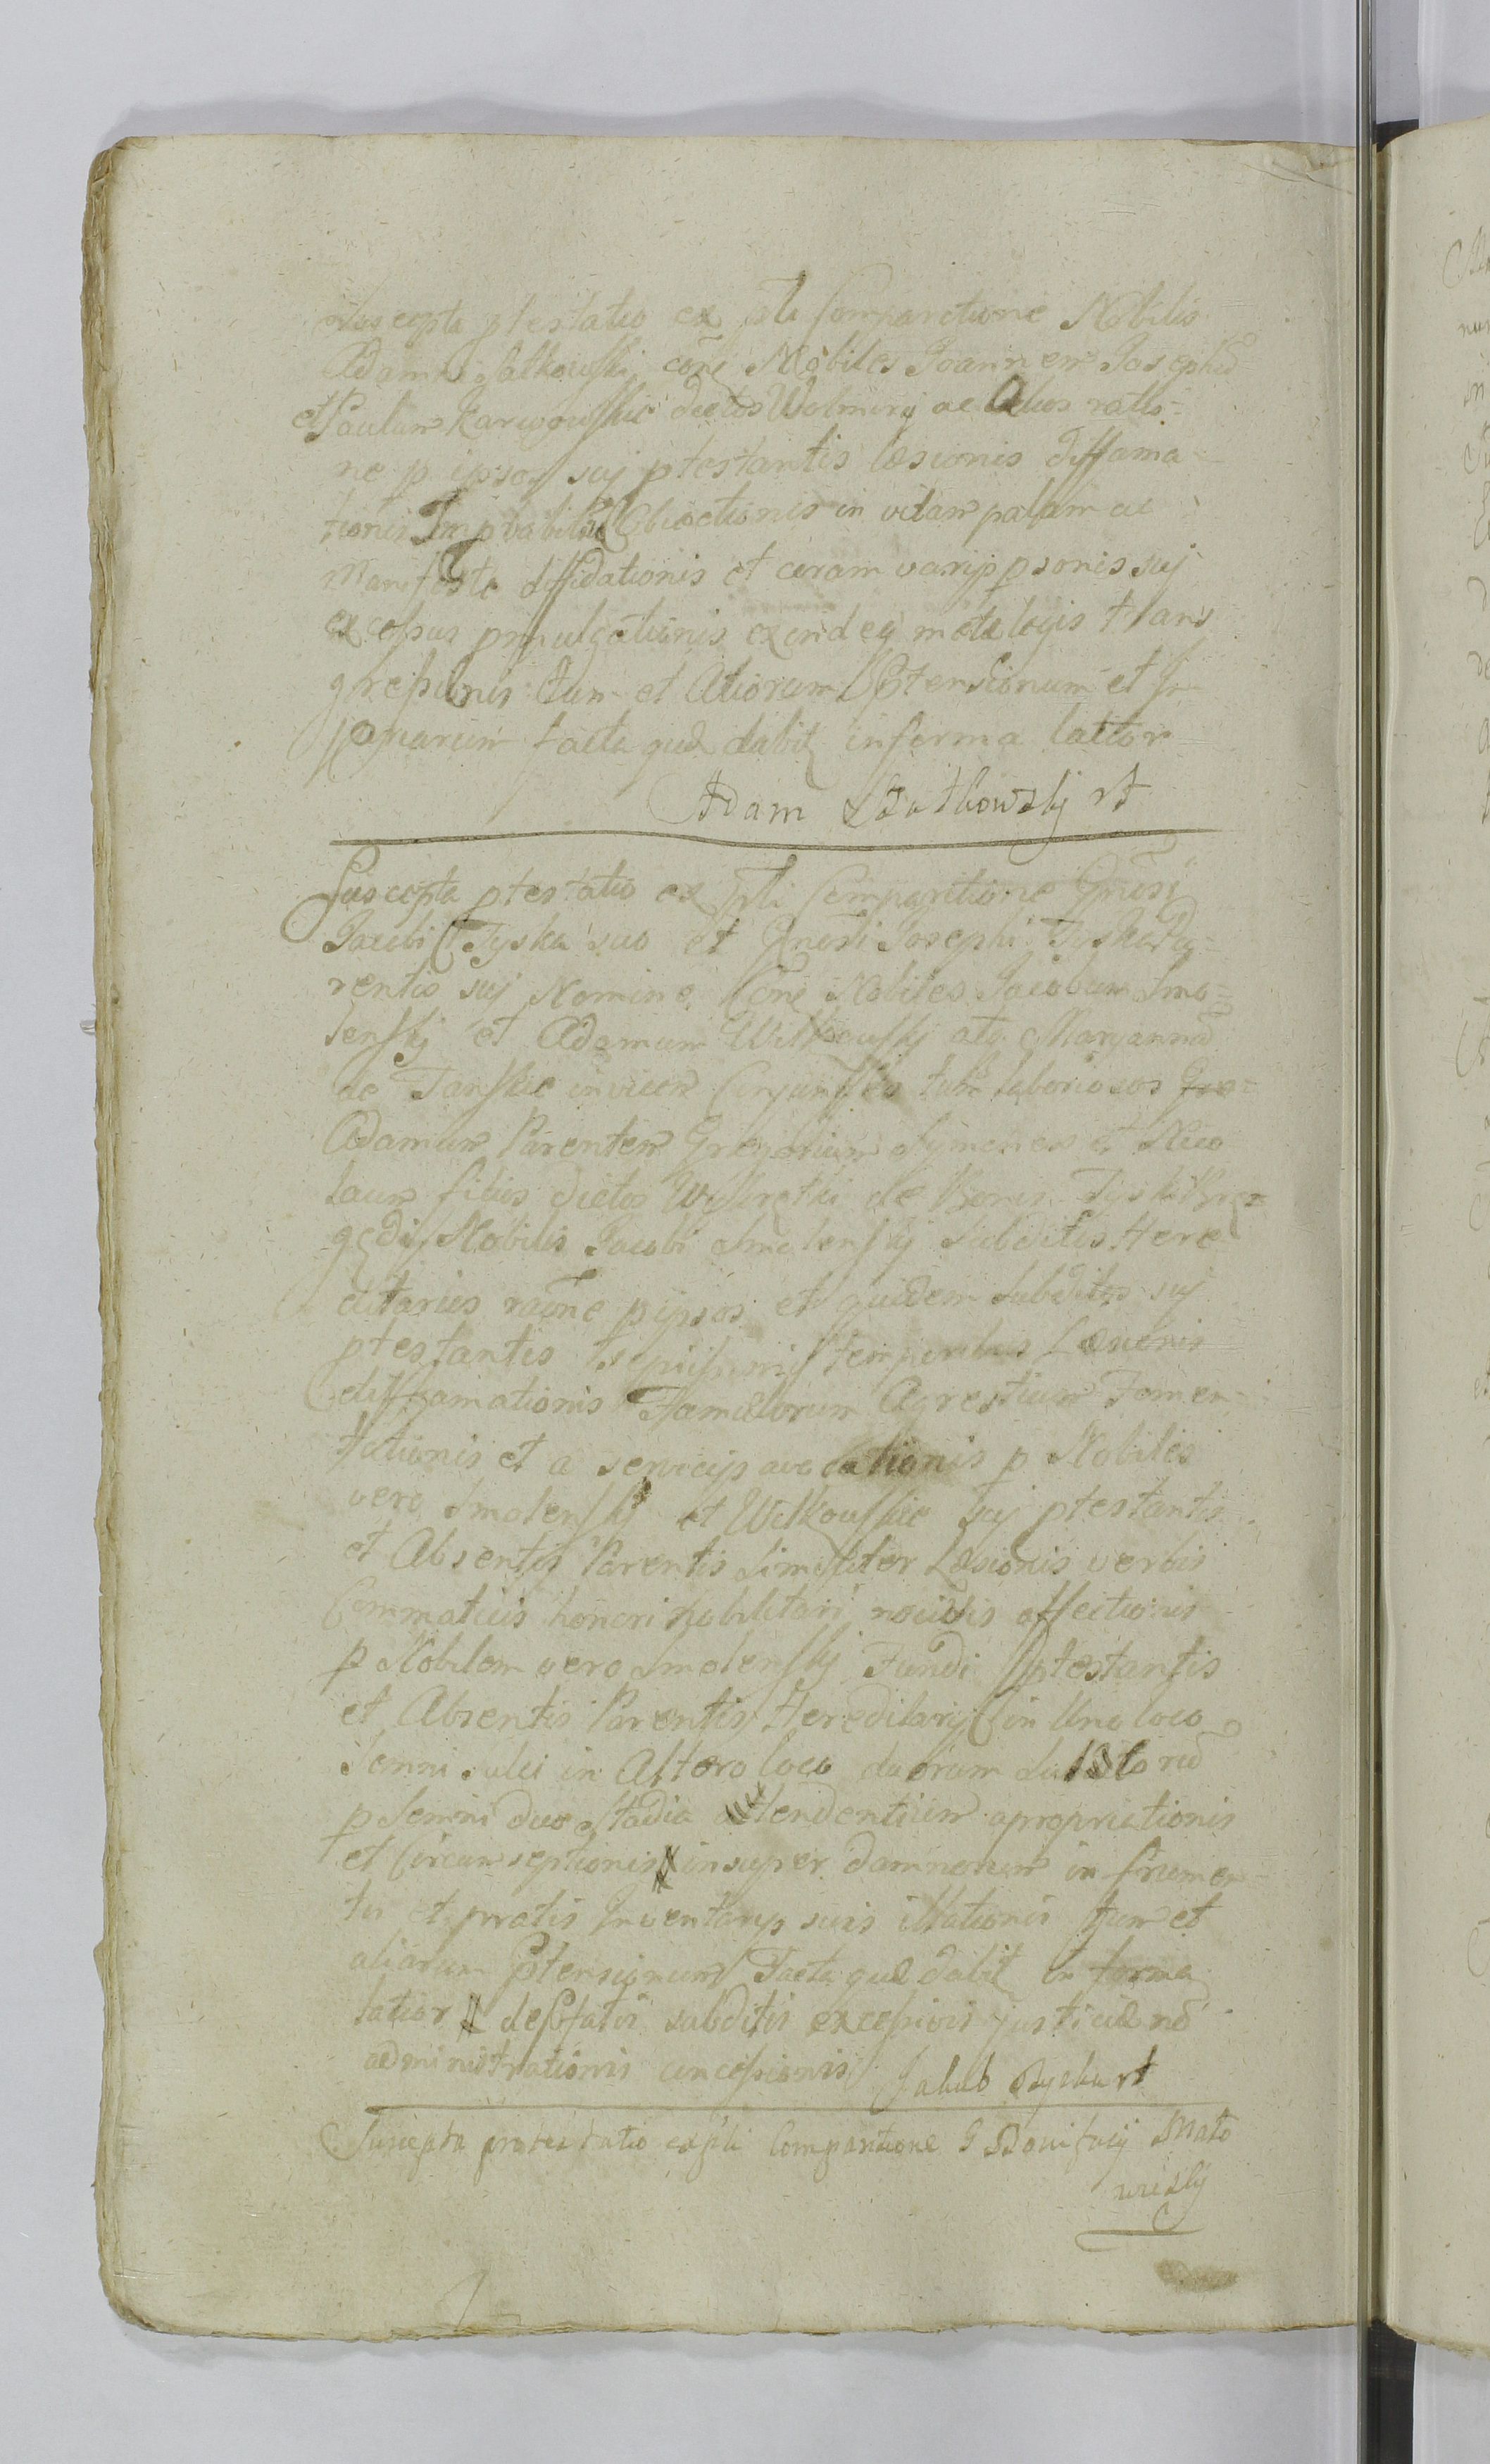 Suscepta ptestatio ex psti Comparitione Nobilis
Adami Satkowski cone Nobiles Joannem Josephu
et Paulum Karwowskie dictos Wolmiry ac Alios ratio=
ne p ipsos suj ptestantis læsionis diffama
tionis Improbabilis Obiectionis in vitam palam ac
Manifeste diffidationis et coram varijs psonis suj
excessus pmulgationis exindeq metæ legis trans
gressionis tum et Aliorum Ptensionum et In
facta quæ dabit in forma latior
Adam Szatkowskj rt
Suscepta ptestatio ex psti Comparitione Gnosi
Jacobi Tyska suo et Gnosi Josephi Tyska Pa=
rentis suj Nomine Cone Nobiles Jacobum Smo=
lenskj et Adamum Wilkowskj atq Maryanna
de Tanskie invicem Conjuges tum laboriosos Gre=
Adamum Parentem Gregorium Symonem et Nico
laum filios dictos de Bonis Tyski
Nobilis Jacobi Smolenskj Subditis Here
ditarios raone p ipsos et quidem Subditos suj
ptestantis temporibus Læsionis
diffamationis Famulorum Agrestium Fomen
tationis et a servicijs avocationis p Nobiles
vero Smolenskj et Wilkowskie suj ptestantis
et Absentis Parentis Similiter Læsionis verbis
Commaticis honori Nobilitari nocivis affectionis
p Nobilem vero Smolenskj Fundi ptestantis
et Absentis Parentis Hereditarij in Uno loco
Semi sulci in Altero loco duorum
p Semi duo Stadia tendentium apropriationis
et Circumseptionis insuper damnorum in frumen
tis et pratis Inventarijs suis illationis tum et
aliarum Ptensionum Facta quæ dabit in forma
latior de subditis excessivis justiciæ no
administrationis Jakub Tyska rt
Suscepta protestatio ex psti Comparitione G Bonifacij Mato
wieskij